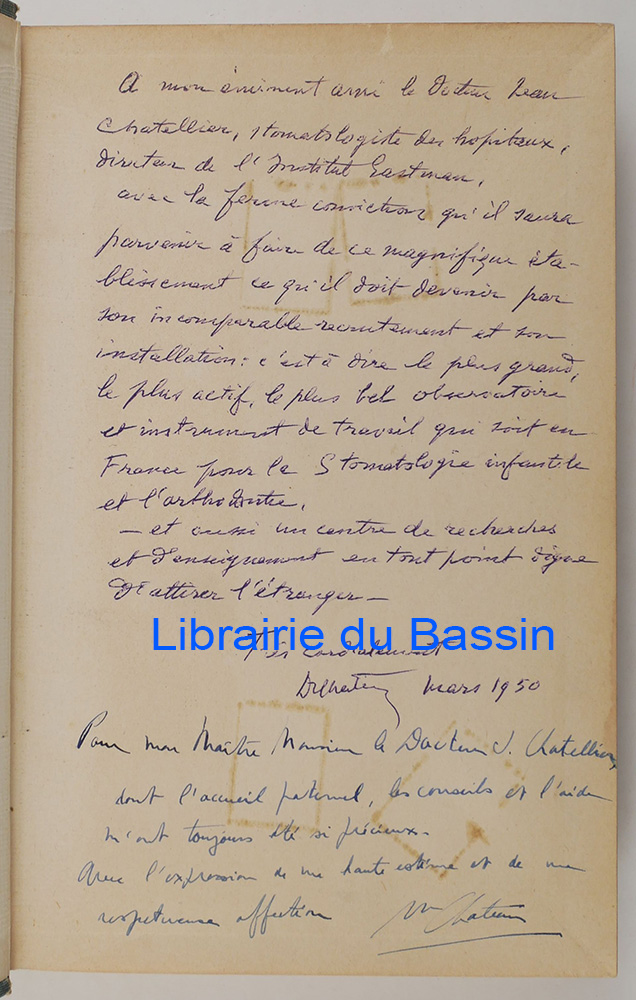 A mon éminent ami le Docteur Jean
Chatellier, stomatologiste des hopitaux,
directeur de l'Institut Eastman,
avec la ferme conviction qu'il saura
parvenir à faire de ce magnifique éta-
blissement ce qu'il doit devenir par
son incomparable recrutement et son
installation : c'est à dire le plus grand,
le plus actif, le plus bel observatoire
et instrument de travail qui soit en
France pour la Stomatologie infantile
et l'orthodontie,
— et aussi un centre de recherches
et d'enseignement en tout point digne
d'attirer l'étranger —
Librairie du Bassin
Très cordialement
mars 1950
Pour mon Maître Monsieur le Docteur J. Chatellier,
dont l'accueil paternel, les conseils et l'aide
m'ont toujours été si précieux.
Avec l'expression de ma haute estime et de ma
respectueuse affection